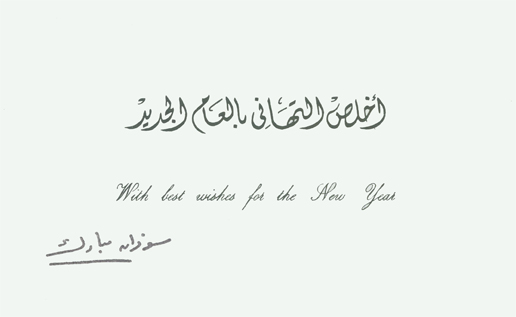 أخلص التهاني بالعام الجديد
With best wishes for the New Year
سوزان مبارك